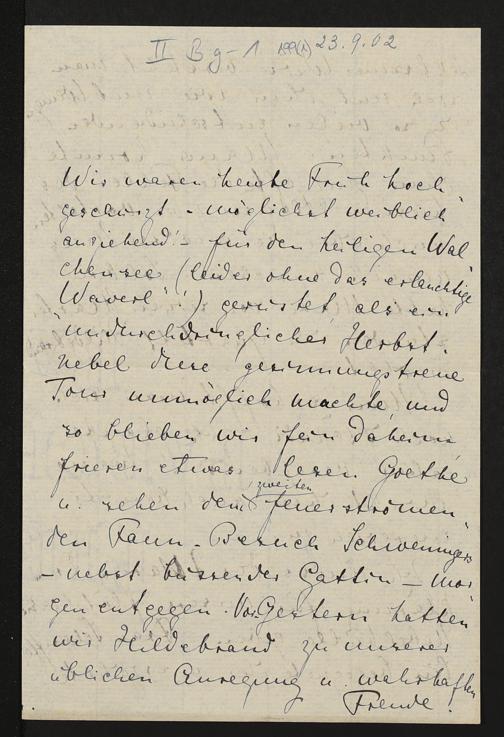 II Bg-1 199(1) 23.9.02
Wir waren heute Früh hoch
geschürzt - möglichst weiblich
anziehend! - für den heiligen Wal
chensee (leider ohne das erlauchtige
"Waverl"!) gerüstet, als ein
undurchdringlicher Herbst-
nebel diese gesinnungstreue
Tour unmöglich machte, und
so blieben wir fein daheim
frieren etwas, lesen Goethe
zweiten
u. sehen dem feuerströmen
den Faun-Besuch Schweningers
- nebst büssender Gattin - mor
gen entgegen. Vor Gestern hatten
wir Hildebrand zu unserer
üblichen Anregung u. wahrhaften
Freude.